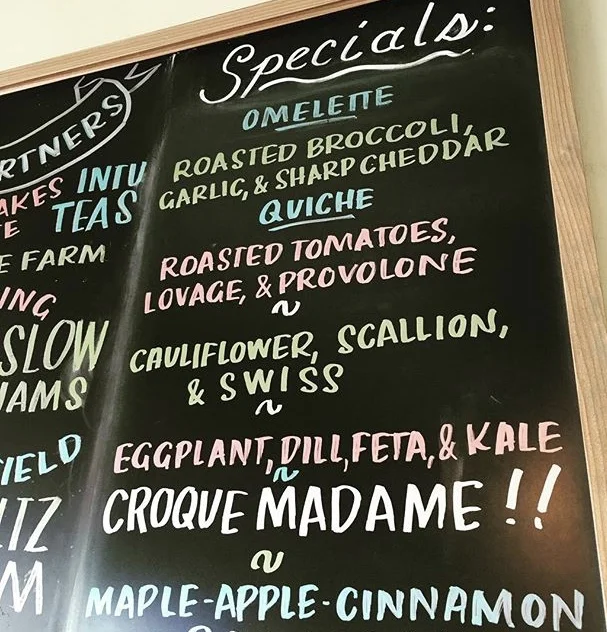 Specials:
OMELETTE
ROASTED BROCCOLI,
GARLIC, & SHARP CHEDDAR
QUICHE
ROASTED TOMATOES,
LOVAGE, & PROVOLONE
~
CAULIFLOWER, SCALLION,
& SWISS
~
EGGPLANT, DILL, FETA, & KALE
~
CROQUE MADAME !!
~
MAPLE-APPLE-CINNAMON
RTNERS
AKES INTU
TEAS
E FARM
ING
SLOW
JAMS
IELD
LTZ
M